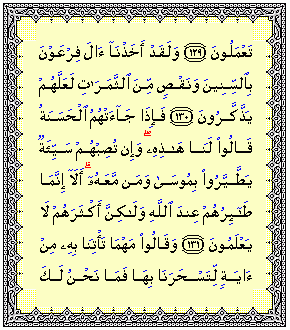 تَعْمَلُونَ ﴿١٢٩﴾ وَلَقَدْ أَخَذْنَآ ءَالَ فِرْعَوْنَ
بِٱلسِّنِينَ وَنَقْصٍ مِّنَ ٱلثَّمَرَٰتِ لَعَلَّهُمْ
يَذَّكَّرُونَ ﴿١٣٠﴾ فَإِذَا جَآءَتْهُمُ ٱلْحَسَنَةُ
قَالُوا۟ لَنَا هَـٰذِهِۦ ۖ وَإِن تُصِبْهُمْ سَيِّئَةٌ
يَطَّيَّرُوا۟ بِمُوسَىٰ وَمَن مَّعَهُۥٓ ۗ أَلَآ إِنَّمَا
طَـٰٓئِرُهُمْ عِندَ ٱللَّهِ وَلَـٰكِنَّ أَكْثَرَهُمْ لَا
يَعْلَمُونَ ﴿١٣١﴾ وَقَالُوا۟ مَهْمَا تَأْتِنَا بِهِۦ مِنْ
ءَايَةٍ لِّتَسْحَرَنَا بِهَا فَمَا نَحْنُ لَكَ